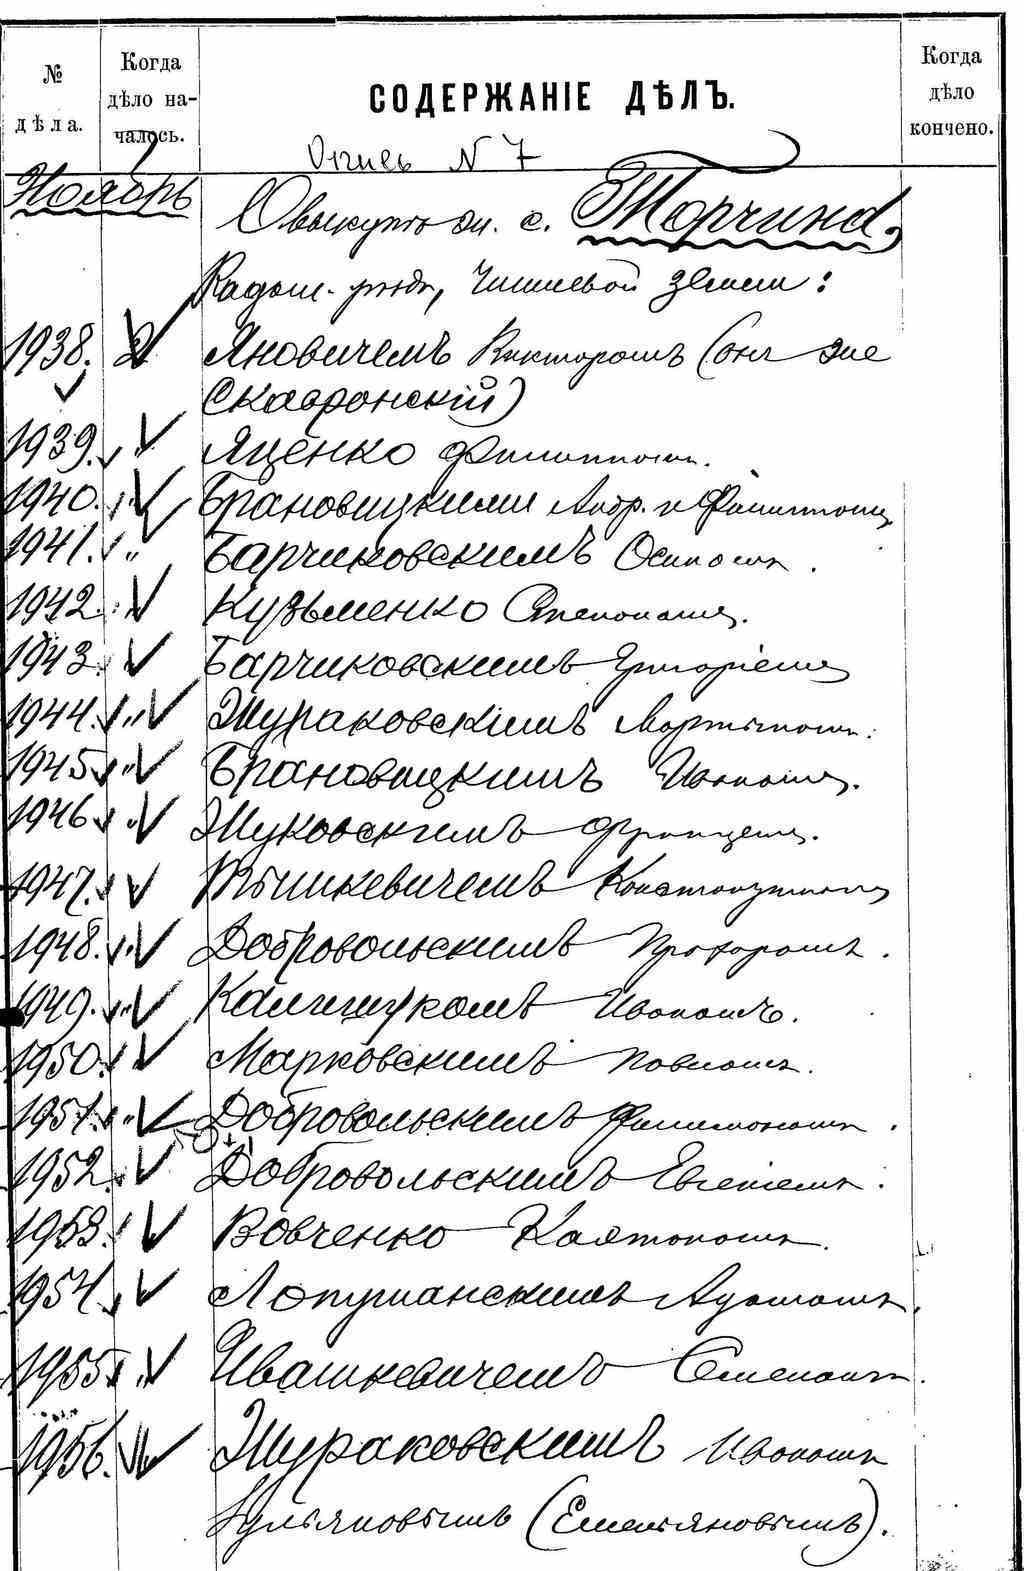 № дѣла.
Когда дѣло началось.
СОДЕРЖАНІЕ ДѢЛЪ.
Когда дѣло кончено.
Опись N 7
Ноябрь
О выкупѣ жит. с. Торчина,
Радом. уѣзда, Чиншевой земли:
1938. 2 Яновичемъ Викторомъ (онъ же
Скавронскій)
1939. " Яценко Филиппомъ.
1940. " Брановицкими Андр. и Филиппомъ
1941. " Барчиковскимъ Осипомъ.
1942. " Кузьменко Степаномъ.
1943. " Барчиковскимъ Григоріемъ
1944. " Жураковскимъ Мартыномъ.
1945. " Брановицкимъ Иваномъ.
1946. " Жуковскимъ Францемъ.
1947. " Тышкевичемъ Константиномъ
1948. " Добровольскимъ Прохоромъ.
1949. " Калищукомъ Иваномъ.
1950. " Марковскимъ Павломъ.
1951. " Добровольскимъ Филимономъ.
1952. " Добровольскимъ Евгеніемъ.
1953. " Вовченко Каятаномъ.
1954. " Лопушанскимъ Адамомъ.
1955. " Ивашкевичемъ Семеномъ.
1956. " Жураковскимъ Иваномъ
Ульяновымъ (Емельяновымъ).